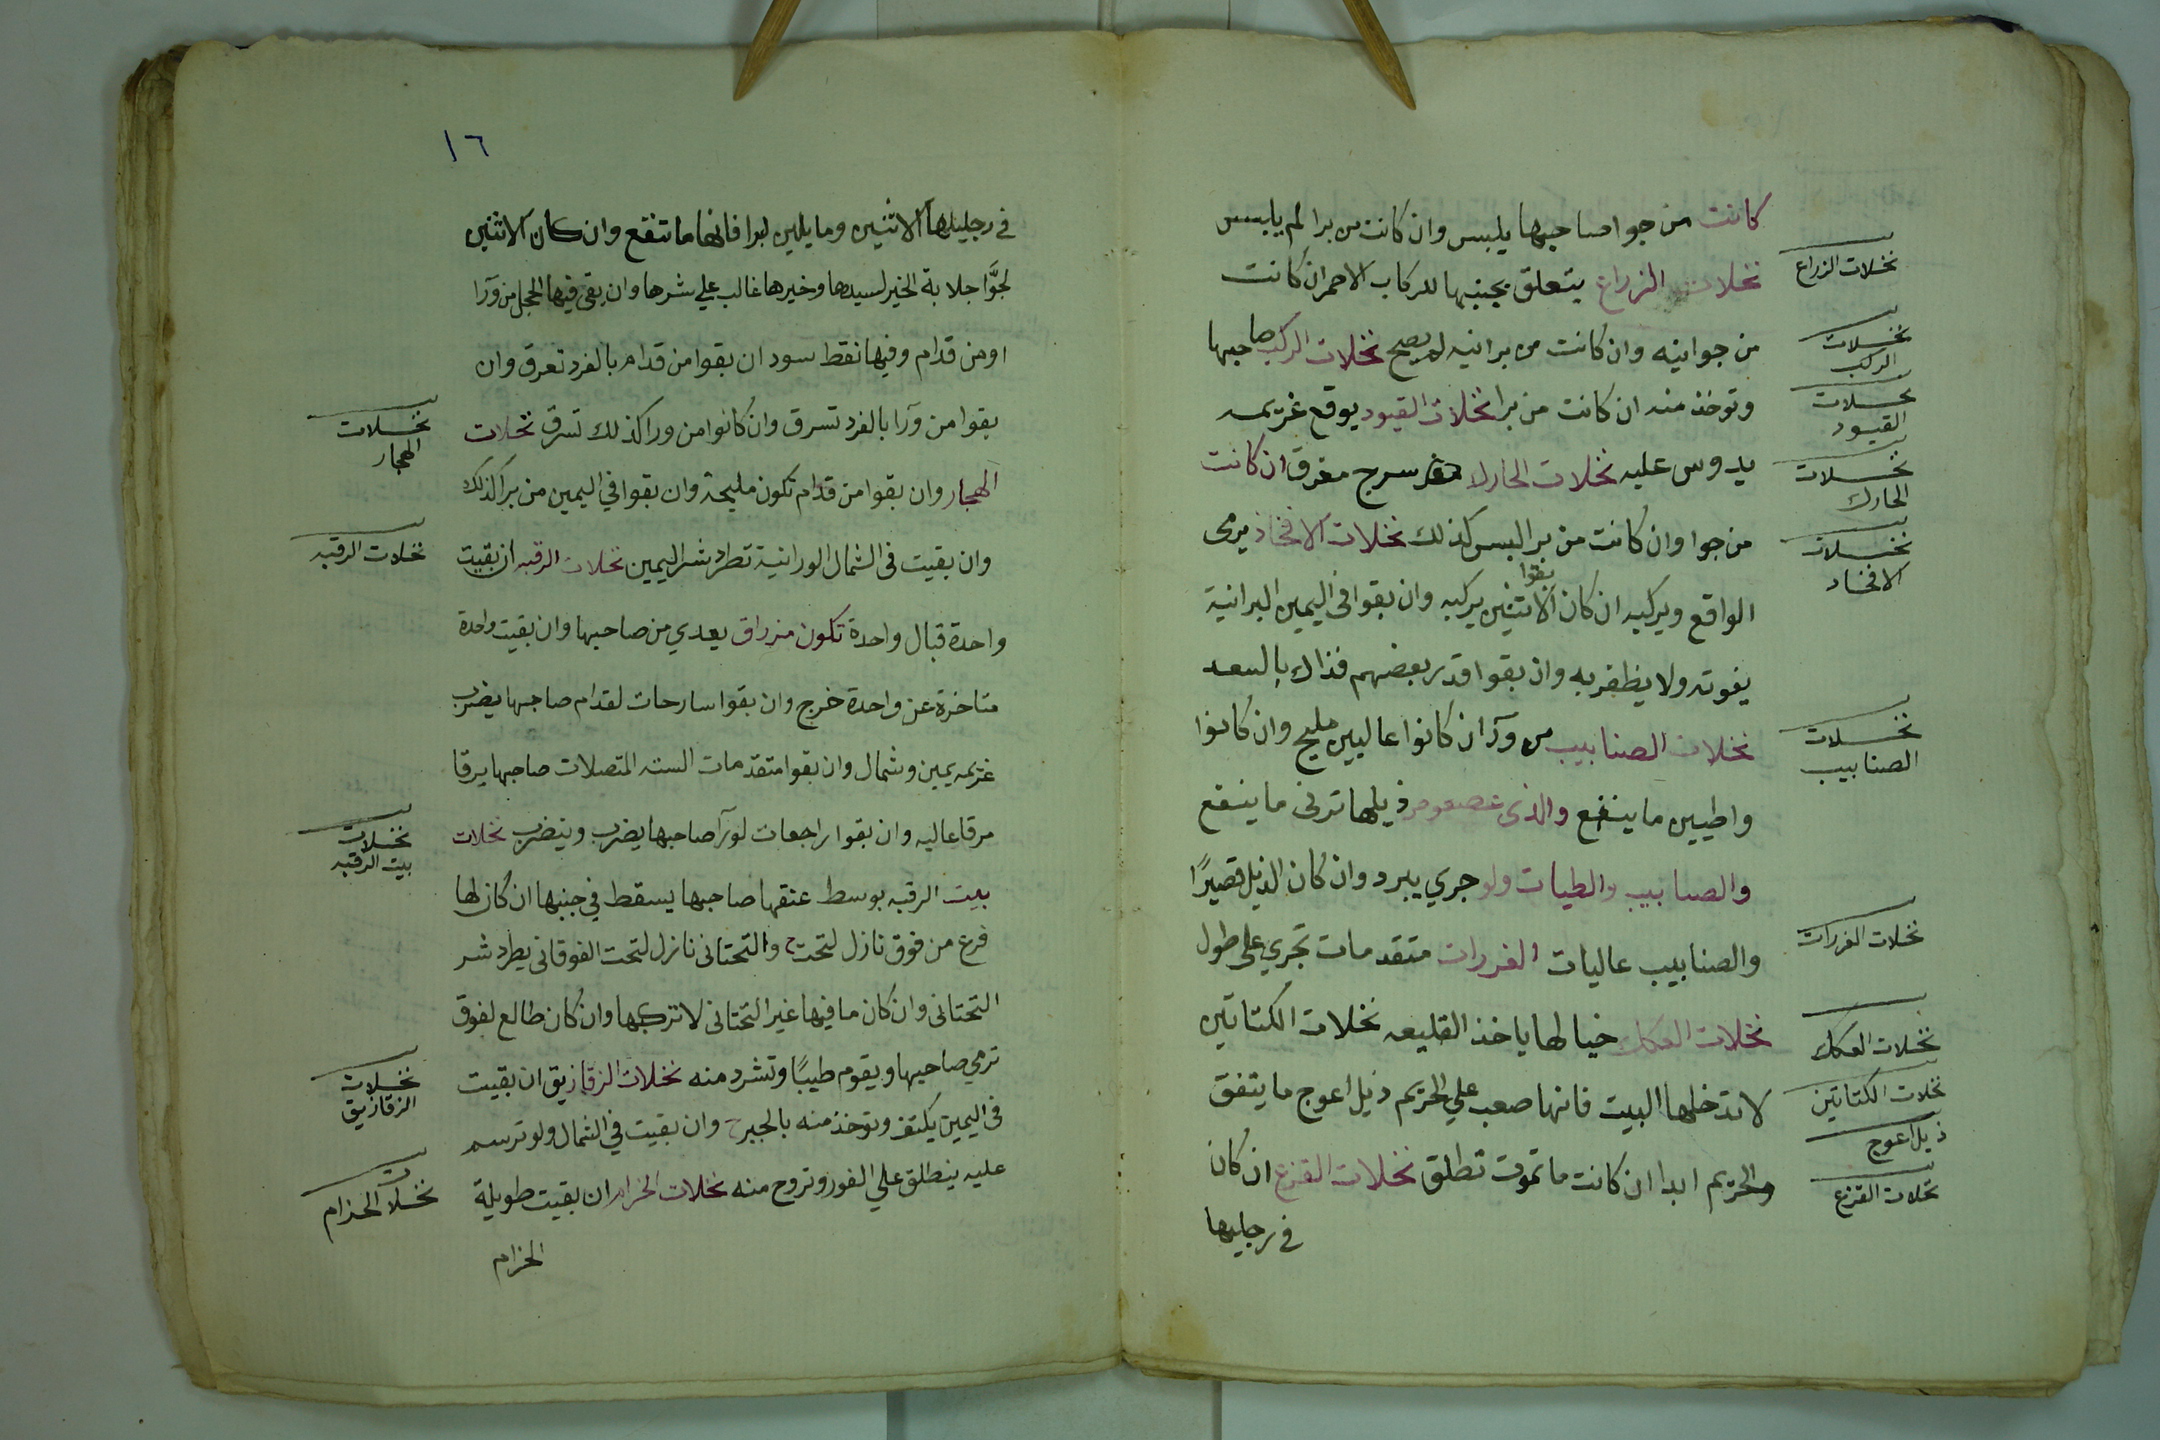 كانت من جوا صاحبها يلبس وان كانت من برا لم يلبس
نخلات الزراع يتعلق بجنبها للركاب الاحمر ان كانت
من جوانيه وان كانت من برانيه لم يصح نخلات الركب صاحبها
وتوخذ منه ان كانت من برا نخلات القيود يوقع غريمه
يدوس عليه نخلات الحارك سرج مغرق ان كانت
من جوا وان كانت من برا لبس كذلك نخلات الافخاذ يرمى
الواقع ويركبه ان كان بقوا الاثنين يركبه وان بقوا فى اليمين البرانية
يفوته ولا يظفر به وان بقوا قدر بعضهم فذاك بالسعد
نخلات الصنابيب من ورآ ان كانوا عاليين مليح وان كانوا
واطيين ما ينفع والذى ذيلها ترخى ما ينفع
والصنابيب والطيات ولو جري يبرد وان كان الذيل قصيرًا
والصنابيب عاليات الغررات متقدمات تجري على طول
نخلات العكك خيالها ياخذ القليعه نخلات الكتاتين
لا تدخلها البيت فانها صعب علي الحريم ذيل اعوج ما يتفق
والحريم ابدا ان كانت ما تموت تطلق نخلات القزع ان كان
فى رجليها
نخلات الزراع
نخلات
الركب
نخلات
القيود
نخلات
الحارك
نخلات
الافخاد
نخلات
الصنابيب
نخلات الغررات
نخلات العكك
نخلات الكتاتين
ذيل اعوج
نخلات القزع
١٦
فى رجليلها الاثنين ومايلين لبرا فانها ما تنفع وان كان الاثنين
لجوَّا جلابة الخير لسيدها وخيرها غالب علي شرها وان بقى فيها الحجل من ورآ
او من قدام وفيها نقط سود ان بقوا من قدام بالفرد تعرق وان
بقوا من ورآ بالفرد تسرق وان كانوا من ورا كذلك تسرق نخلات
الهجار وان بقوا من قدام تكون مليحة وان بقوا في اليمين من برا كذلك
وان بقيت فى الشمال الورانية تطرد شر اليمين نخلات الرقبه ان بقيت
واحدة قبال واحدة تكون مزراق يعدي من صاحبها وان بقيت واحدة
متاخرة عن واحدة خرج وان بقوا سارحات لقدام صاحبها يضرب
غريمه يمين وشمال وان بقوا متقدمات السته المتصلات صاحبها يرقا
مرقا عاليه وان بقوا راجعات لورآ صاحبها يضرب وينضرب نخلات
بيت الرقبه بوسط عنقها صاحبها يسقط في جنبها ان كان لها
فرع من فوق نازل لتحت والتحتانى نازل لتحت الفوقانى يطرد شر
التحتانى وان كان ما فيها غير التحتانى لا تركبها وان كان طالع لفوق
ترمي صاحبها ويقوم طيبًا وتشرد منه نخلات الزقازيق ان بقيت
فى اليمين يكتف وتوخذ منه بالجبر وان بقيت في الشمال ولو ترسم
عليه ينطلق علي الفور وتروح منه نخلات الحزام ان بقيت طويلة
الحزام
نخلات
الهجار
نخلات الرقبه
نخلات
بيت الرقبه
نخلات
الزقازيق
نخلات الحزام